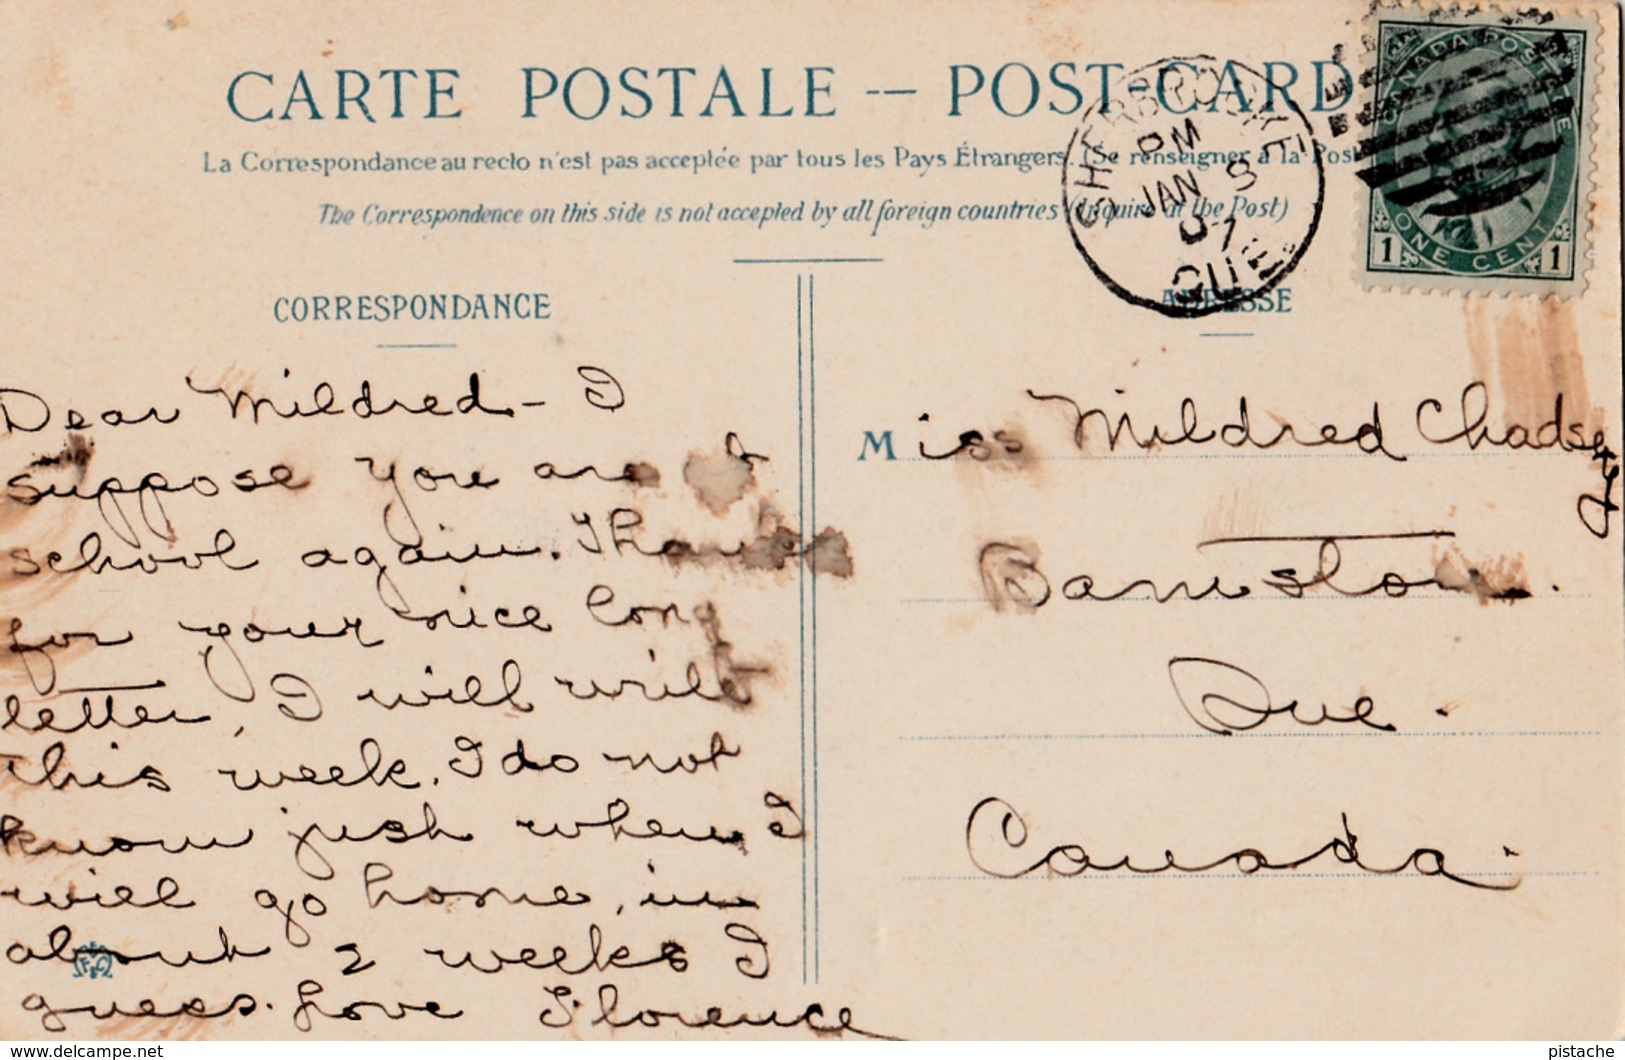 CARTE POSTALE -- POST-CARD
La Correspondance au recto n'est pas acceptée par tous les Pays Étrangers. (Se renseigner à la Post
The Correspondence on this side is not accepted by all foreign countries (Inquire at the Post)
SHERBROOKE
PM
JAN 9
07
QUE.
CANADA POSTAGE
ONE CENT
1 1
CORRESPONDANCE
Dear Mildred - I
suppose you are at
school again. Thanks
for your nice long
letter, I will write
this week. I do not
know just when I
will go home, in
about 2 weeks I
guess. Love Florence
ADRESSE
Miss Mildred Chadsey
Barnston.
Que.
Canada.
pistache
https://www.delcampe.net